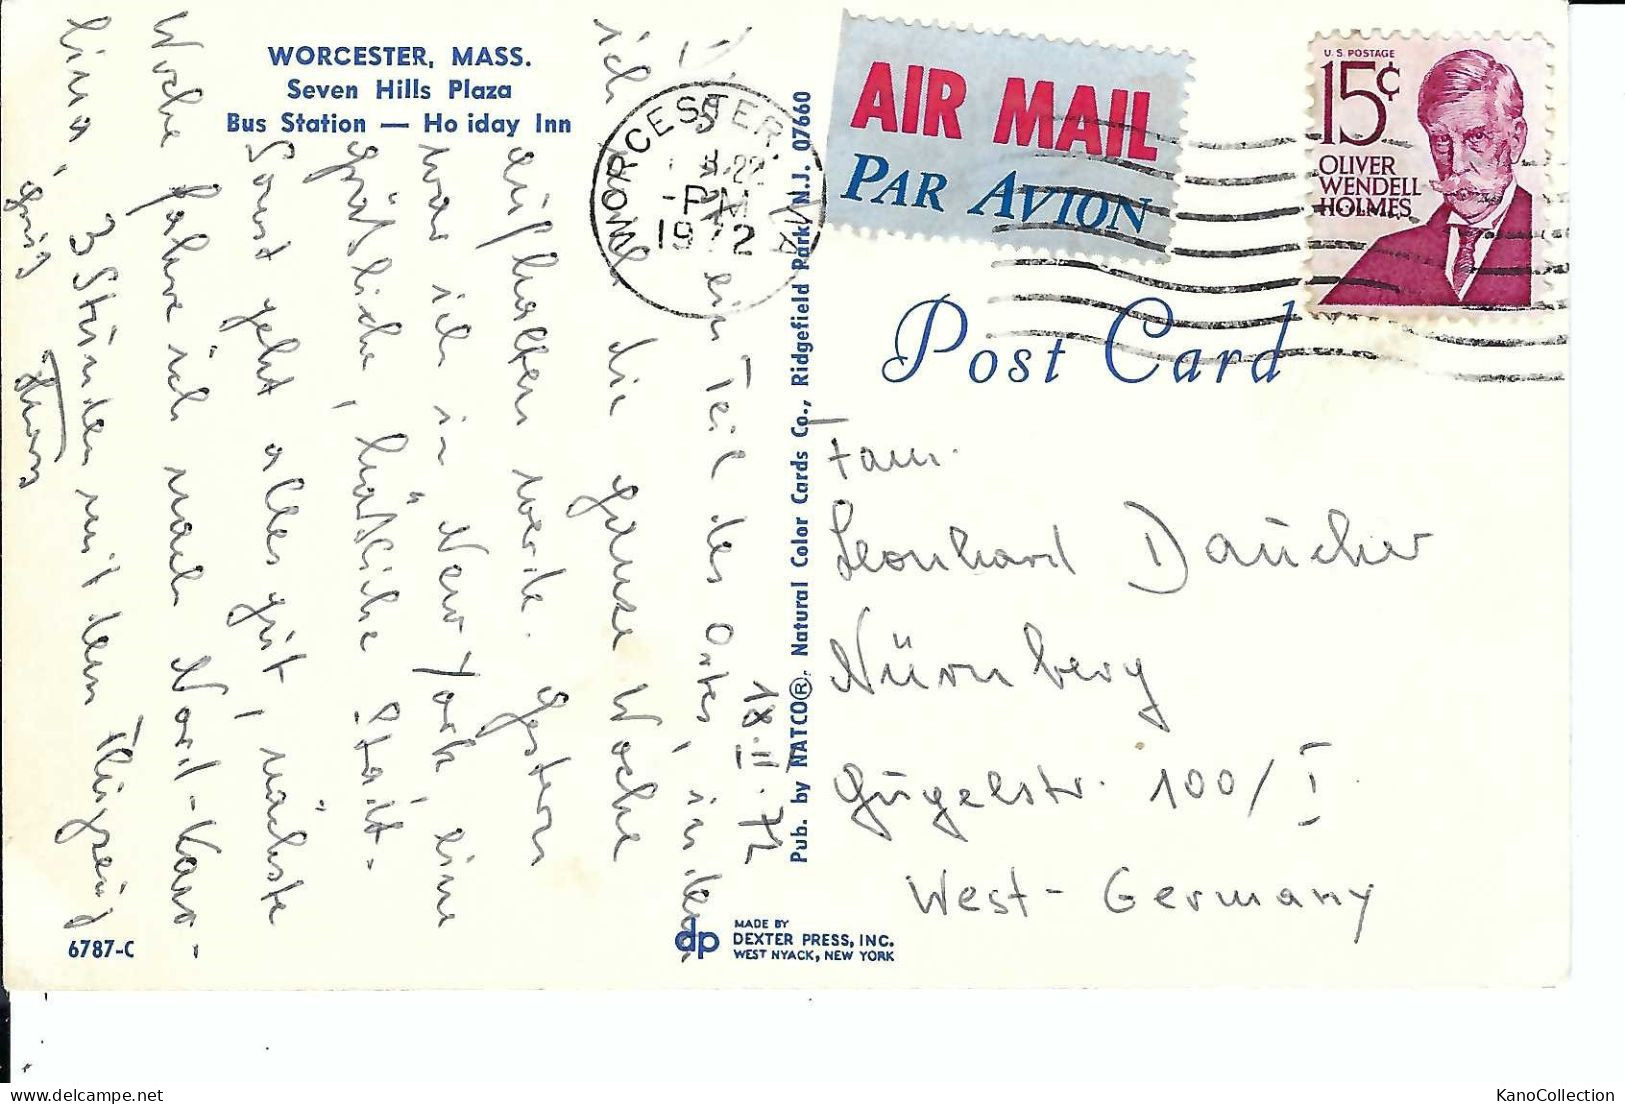 WORCESTER, MASS.
Seven Hills Plaza
Bus Station — Ho iday Inn
18.III.72
ein Teil des Ortes, in dem
ich die ganze Woche
aufhalten werde. Gestern
war ich in New York eine
gräßliche, häßliche Stadt.
Sonst geht alles gut, nächste
Woche fahre ich nach Nord-Karo-
lina, 3 Stunden mit dem Flugzeug
Gruß
6787-C
Pub. by NATCO®, Natural Color Cards Co., Ridgefield Park, N.J. 07660
dp
MADE BY
DEXTER PRESS, INC.
WEST NYACK, NEW YORK
WORCESTER, MA
PM
1972
AIR MAIL
PAR AVION
U.S. POSTAGE
15¢
OLIVER
WENDELL
HOLMES
Post Card
Fam.
Leonhard Daucher
Nürnberg
Gugelstr. 100/I
West-Germany
KanoCollection